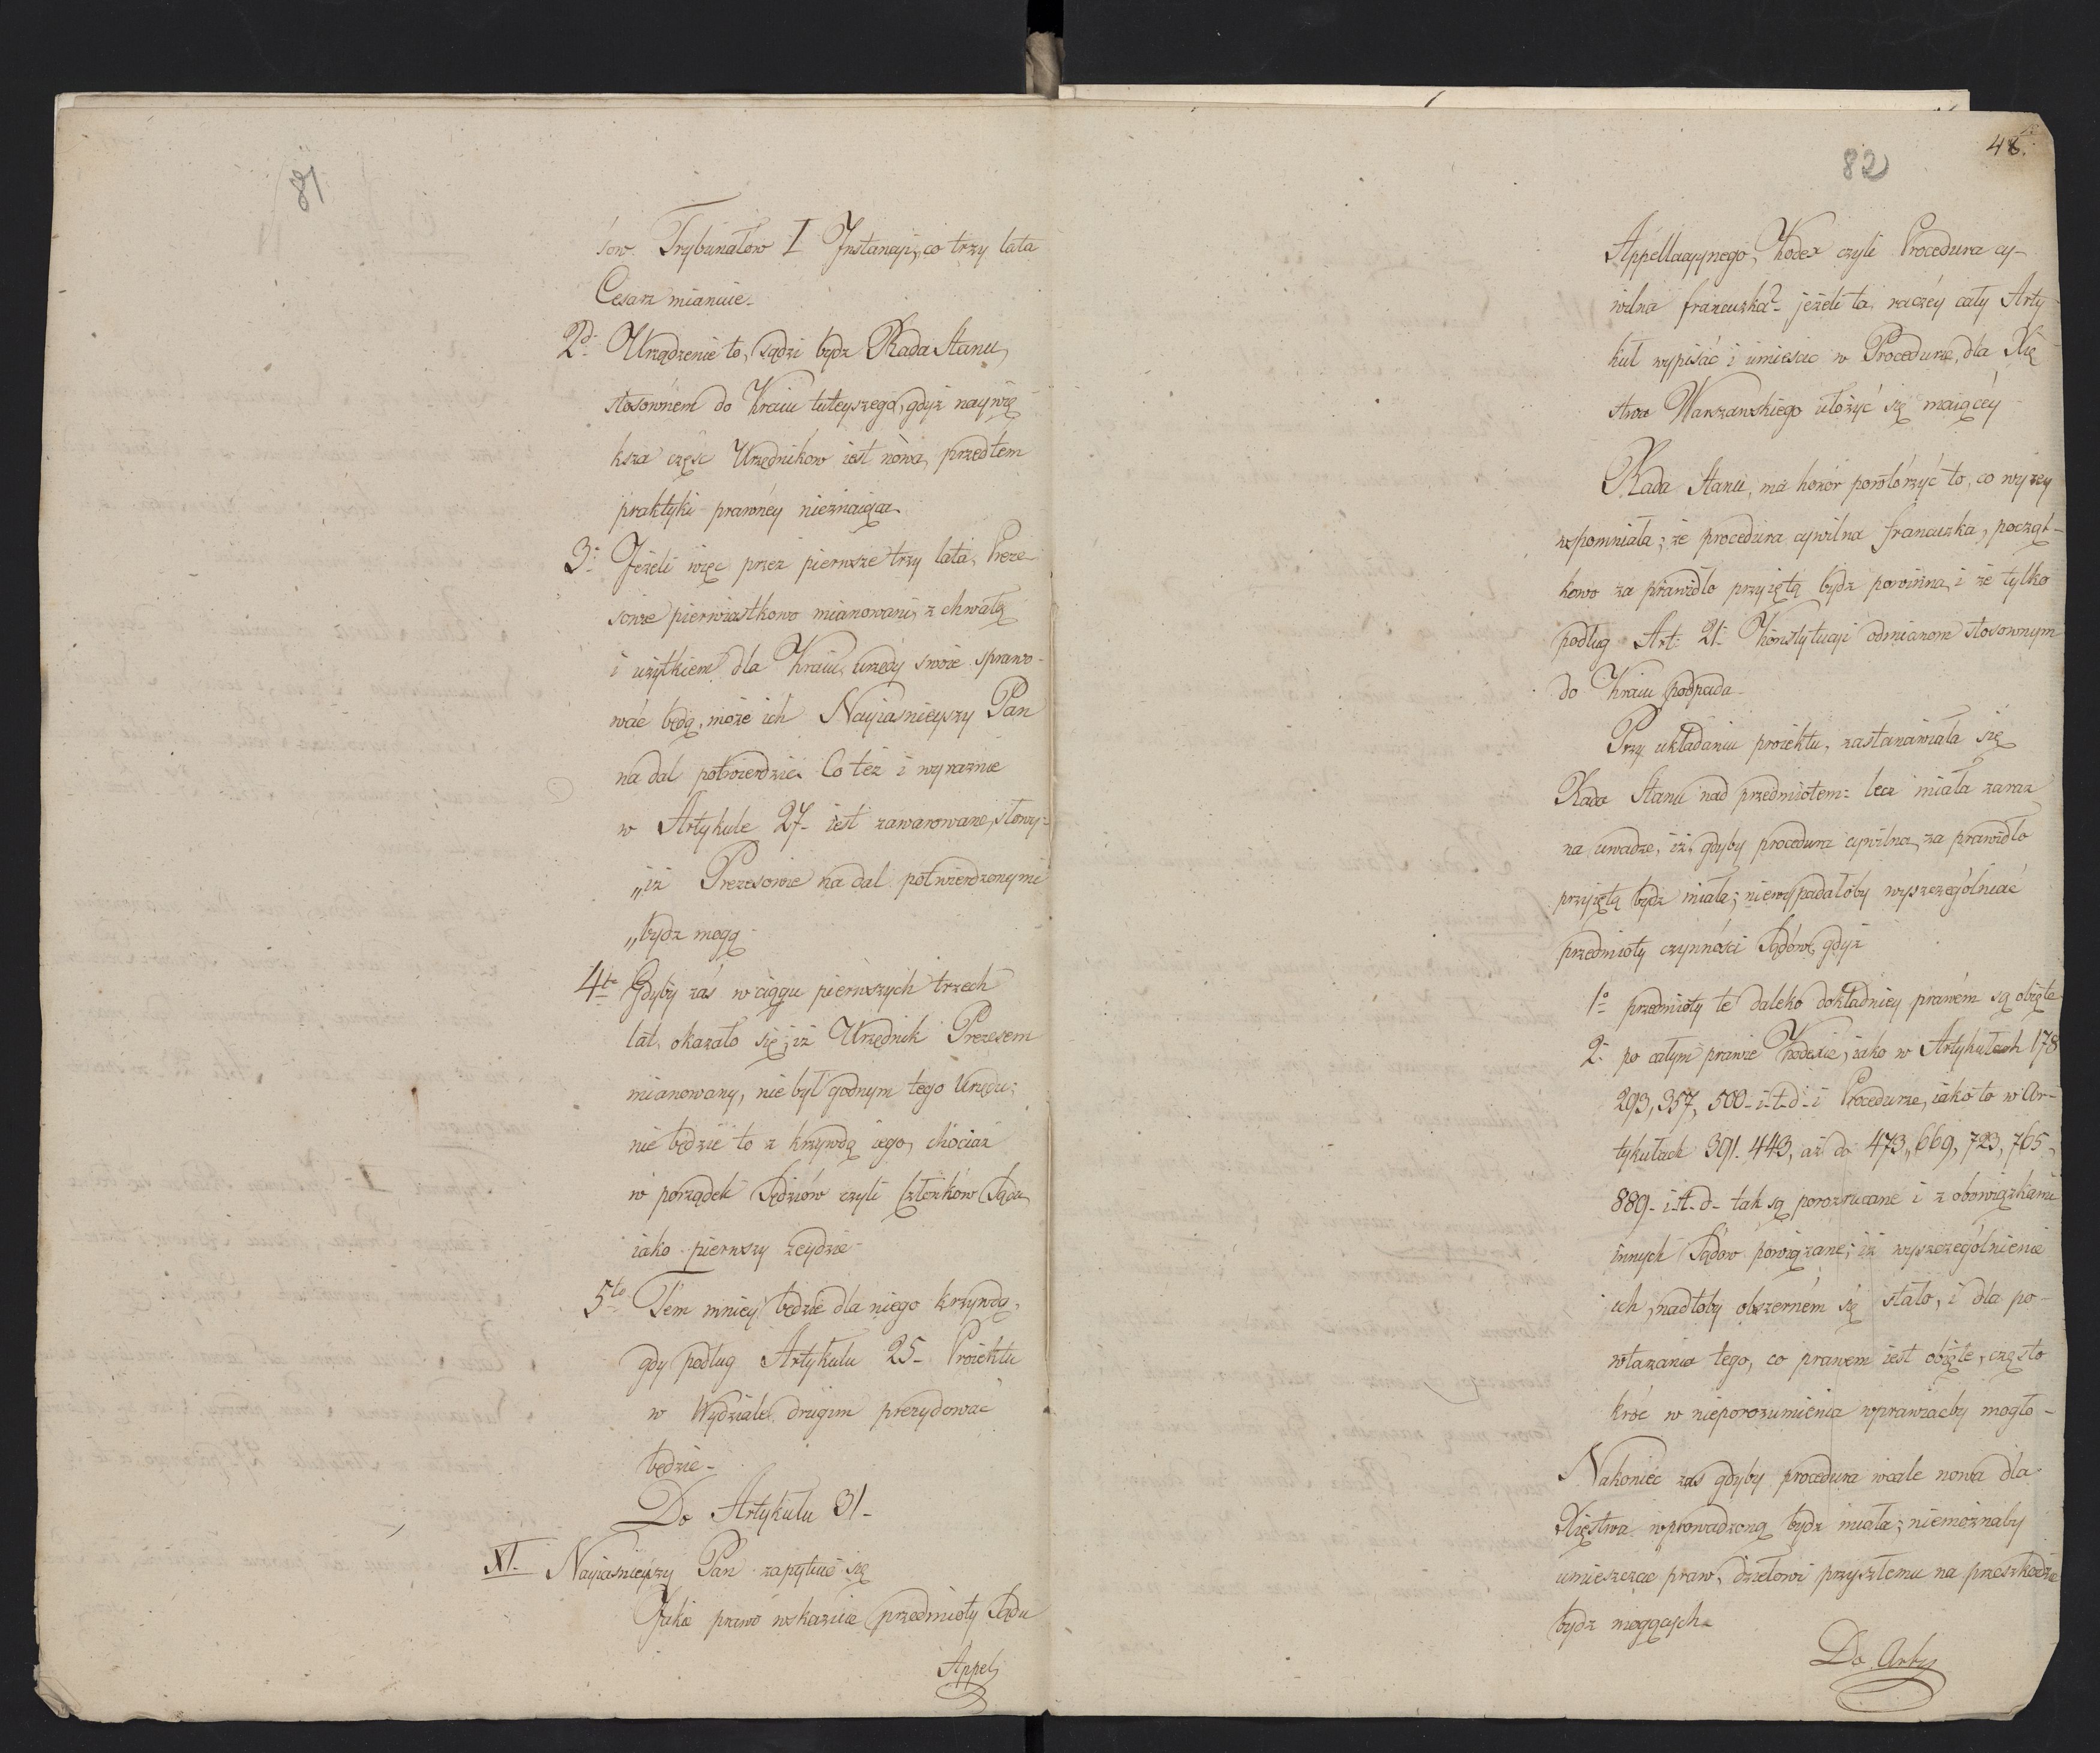 81
sow Trybunałow I Jnstancyi, co trzy lata
Cesarz mianuie.
2d. Urządzenie to, sądzi bydz Rada Stanu,
stosownem do Kraiu tuteyszego, gdyz naywię
ksza częsc Urzędnikow iest nowa, przedtem
praktyki prawney nieznaiąca.
3. Jezeli więc przez pierwsze trzy lata, Preze-
sowie pierwiastkowo mianowani, z chwałą
i uzytkiem dla Kraiu, urzędy swoie sprawo-
wać będą, moze ich Nayiasnieyszy Pan
na dal potwierdzic. Co tez i wyraznie
w Artykule 27. iest zawarowane, słowy:
„iz Prezesowie na dal potwierdzonymi
„bydz mogą.
4to Gdyby zas w ciągu pierwszych trzech
lat, okazało się, iz Urzędnik Prezesem
mianowany, nie był godnym tego Urzędu;
nie będzie to z krzywdą iego, chociaz
w porządek Sędziów czyli Członków Sądu,
iako pierwszy zeydzie.
5to Tem mniey będzie dla niego krzywdą,
gdy podług Artykułu 25. Proiektu
w Wydziale drugim prezydować
będzie.
Do Artykułu 31.
XI. Nayiasnieyszy Pan zapytuie się
Jakie prawo wskazuie przedmioty Sądu
Appel
82
48.
Appellacyynego, Kodex czyli Procedura cy-
wilna francuzka? jezeli ta, raczéy cały Arty-
kuł wypisać i umiescic w Procedurze, dla Xię
stwa Warszawskiego ułozyć się maiącéy
Rada Stanu, ma honór powtórzyć to, co wyzey
wspomniała; ze procedura cywilna francuzka, począt-
kowo za prawidło przyiętą bydz powinna, i ze tylko
podług Art. 21. Konstytucyi odmianom stosownym
do Kraiu podpada.
Przy układaniu proiektu, zastanawiała się
Rada Stanu nad przedmiotem: lecz miała zaraz
na uwadze, iz gdyby procedura cywilna, za prawidło
przyiętą bydz miała; niewypadałoby wyszczególniać
przedmioty czynności Sądów, gdyz
1o przedmioty te daleko dokładniey prawem są obięte
2. po całym prawie Kodexie, iako w Artykułach 178
293, 357, 500. i. t. d. i Procedurze, iako to w Ar-
tykułach 391. 443, az do 473, 669, 723, 765,
889. i. t. d. tak są porozrzucane i z obowiązkami
innych Sądów powiązane; iz wyszczególnienie
ich, nadtoby obszerném się stało, i dla po-
wtarzania tego, co prawem iest obięte, często
króc w nieporozumienia wprawiacby mogło.
Nakoniec zas gdyby procedura wcale nowa dla
Xięstwa wprowadzoną bydz miała; niemoznaby
umieszczac praw, dziełowi przyszłemu na przeszkodzie
bydz mogących.
Do Arty